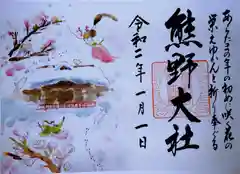 あらたまの年の初めに咲く花の
栄えゆかんと祈り奉くる
熊野大社
令和二年一月一日